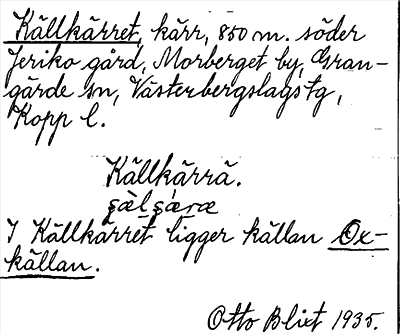 Källkärret, kärr, 850 m. söder
Jeriko gård, Morberget by, Gran-
gärde sn, Västerbergslags tg,
Kopp l.
Källkärrä.
I Källkärret ligger källan Ox-
källan.
Otto Blixt 1935.